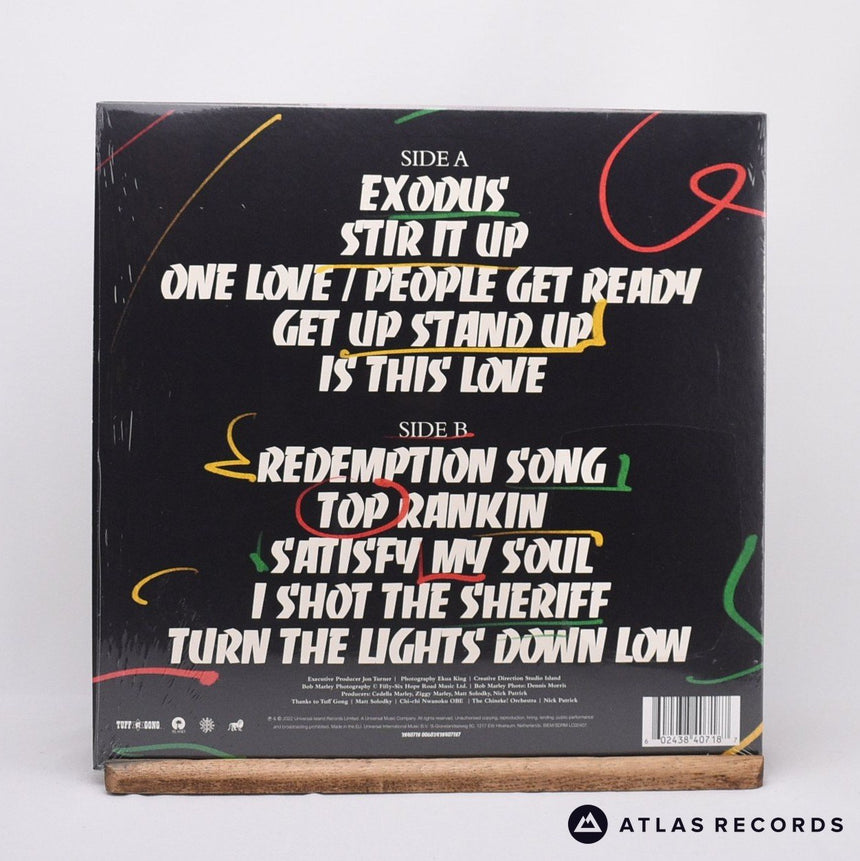 SIDE A
EXODUS
STIR IT UP
ONE LOVE / PEOPLE GET READY
GET UP STAND UP
IS THIS LOVE
SIDE B
REDEMPTION SONG
TOP RANKIN
SATISFY MY SOUL
I SHOT THE SHERIFF
TURN THE LIGHTS DOWN LOW
Executive Producer Jon Turner | Photography Ekua King | Creative Direction Studio Island
Bob Marley Photography © Fifty-Six Hope Road Music Ltd. | Bob Marley Photo: Dennis Morris
Producers: Cedella Marley, Ziggy Marley, Matt Solodky, Nick Patrick
Thanks to Tuff Gong | Matt Solodky | Chi-chi Nwanoku OBE | The Chineke! Orchestra | Nick Patrick
TUFF GONG
ISLAND
℗ & © 2022 Universal-Island Records Limited. A Universal Music Company. All rights reserved. Unauthorised copying, reproduction, hiring, lending, public performance
and broadcasting prohibited. Made in the EU. Universal International Music B.V.
6 02438 40718 7
ATLAS RECORDS